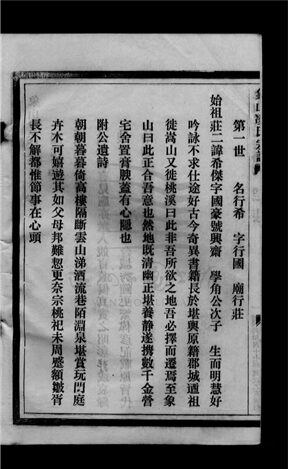 第一世　名行希　字行國　廟行莊
始祖莊二諱希傑字國豪號興齋　學角公次子　生而明慧好
吟詠不求仕途好古今奇異書籍長於堪輿原籍郡城遷祖
徙嵩山又徙桃溪曰此非吾所欲之地吾必擇而遷焉至象
山曰此正合吾意也然地既清幽正堪養靜遂携數千金營
宅舍置膏腴蓋有心隱也
附公遺詩
朝朝暮暮倚高樓隔斷雲山涕泗流巷陌淵泉堪賞玩門庭
卉木可嬉遊其如父母邦難恝更奈宗桃祀未周蹙額皺眉
長不解都惟節事在心頭